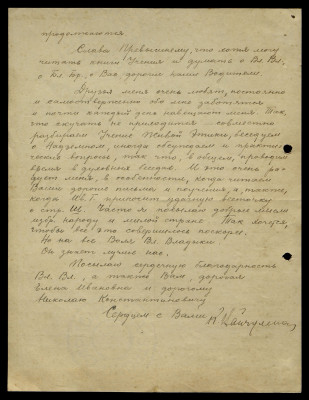 продолжаются.
Слава Превышнему, что хотя могу
читать книги Учения и думать о Вл. Вл.,
о Бл. Бр., о Вас, дорогие наши Водители.
Друзья меня очень любят, постоянно
и самоотверженно обо мне заботятся
и почти каждый день навещают меня. Так,
что скучать не приходится - совместно
разбираем Учение Живой Этики, беседуем
о Надземном, иногда обсуждаем и практи-
ческие вопросы, так что, в общем, проводим
время в духовных беседах. И это очень ра-
дует меня, в особенности, когда читаем
Ваши дорогие письма и поучения, а, также,
когда Ив. Г. приносит удачную весточку
о стр. Щ. Часто и невольно думаю
избр. народу и милой стране. Так хочется,
чтобы всё это совершилось поскорее.
Но на всё Воля Вл. Владыки.
Он знает лучше нас.
Посылаю сердечную благодарность
Вл. Вл., а также Вам, дорогая
Елена Ивановна и дорогому
Николаю Константиновичу
Сердцем с Вами